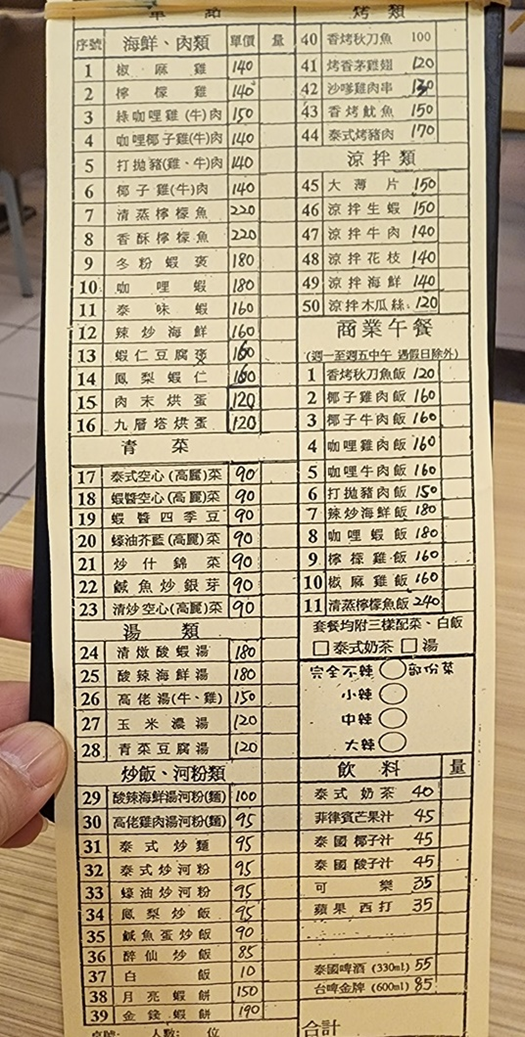 單點
序號 海鮮、肉類 單價 量
1 椒麻雞 140
2 檸檬雞 140
3 綠咖哩雞(牛)肉 150
4 咖哩椰子雞(牛)肉 140
5 打拋豬(雞、牛)肉 140
6 椰子雞(牛)肉 140
7 清蒸檸檬魚 220
8 香酥檸檬魚 220
9 冬粉蝦褒 180
10 咖哩蝦 180
11 泰味蝦 160
12 辣炒海鮮 160
13 蝦仁豆腐褒 160
14 鳳梨蝦仁 160
15 肉末烘蛋 120
16 九層塔烘蛋 120
青菜
17 泰式空心(高麗)菜 90
18 蝦醬空心(高麗)菜 90
19 蝦醬四季豆 90
20 蠔油芥藍(高麗)菜 90
21 炒什錦菜 90
22 鹹魚炒銀芽 90
23 清炒空心(高麗)菜 90
湯類
24 清燉酸蝦湯 180
25 酸辣海鮮湯 180
26 高佬湯(牛、雞) 150
27 玉米濃湯 120
28 青菜豆腐湯 120
炒飯、河粉類
29 酸辣海鮮湯河粉(麵) 100
30 高佬雞肉湯河粉(麵) 95
31 泰式炒麵 95
32 泰式炒河粉 95
33 蠔油炒河粉 95
34 鳳梨炒飯 95
35 鹹魚蛋炒飯 90
36 醉仙炒飯 85
37 白飯 10
38 月亮蝦餅 150
39 金錢蝦餅 190
桌號: 人數: 位
烤類
40 香烤秋刀魚 100
41 烤香茅雞翅 120
42 沙嗲雞肉串 130
43 香烤魷魚 150
44 泰式烤豬肉 170
涼拌類
45 大薄片 150
46 涼拌生蝦 150
47 涼拌牛肉 140
48 涼拌花枝 140
49 涼拌海鮮 140
50 涼拌木瓜絲 120
商業午餐
(週一至週五中午 遇假日除外)
1 香烤秋刀魚飯 120
2 椰子雞肉飯 160
3 椰子牛肉飯 160
4 咖哩雞肉飯 160
5 咖哩牛肉飯 160
6 打拋豬肉飯 150
7 辣炒海鮮飯 180
8 咖哩蝦飯 180
9 檸檬雞飯 160
10 椒麻雞飯 160
11 清蒸檸檬魚飯 240
套餐均附三樣配菜、白飯
□泰式奶茶 □湯
完全不辣○部份菜
小辣○
中辣○
大辣○
飲料 量
泰式奶茶 40
菲律賓芒果汁 45
泰國椰子汁 45
泰國酸子汁 45
可樂 35
蘋果西打 35
泰國啤酒(330ml) 55
台啤金牌(600ml) 85
合計